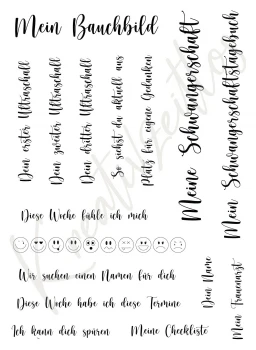 Mein Bauchbild
Dein erster Ultraschall
Dein zweiter Ultraschall
Dein dritter Ultraschall
So siehst du aktuell aus
Platz für eigene Gedanken
Meine Schwangerschaft
Mein Schwangerschaftstagebuch
Diese Woche fühle ich mich
Wir suchen einen Namen für dich
Diese Woche habe ich diese Termine
Ich kann dich spüren
Meine Checkliste
Dein Name
Mein Frauenarzt